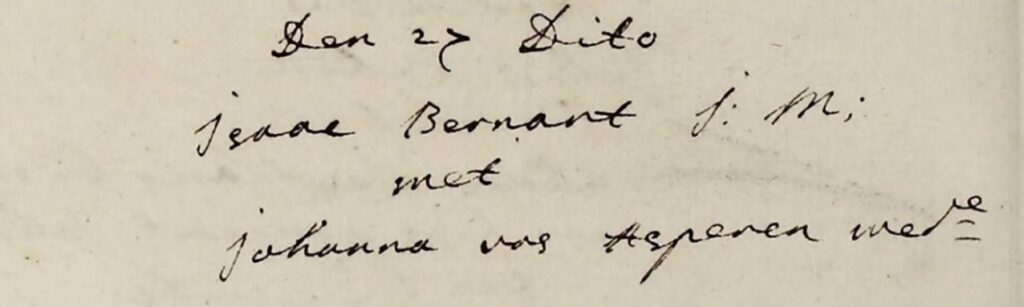 Den 27 Dito
Jsaac Bernart J: M:
met
Johanna vos Asperen wedre